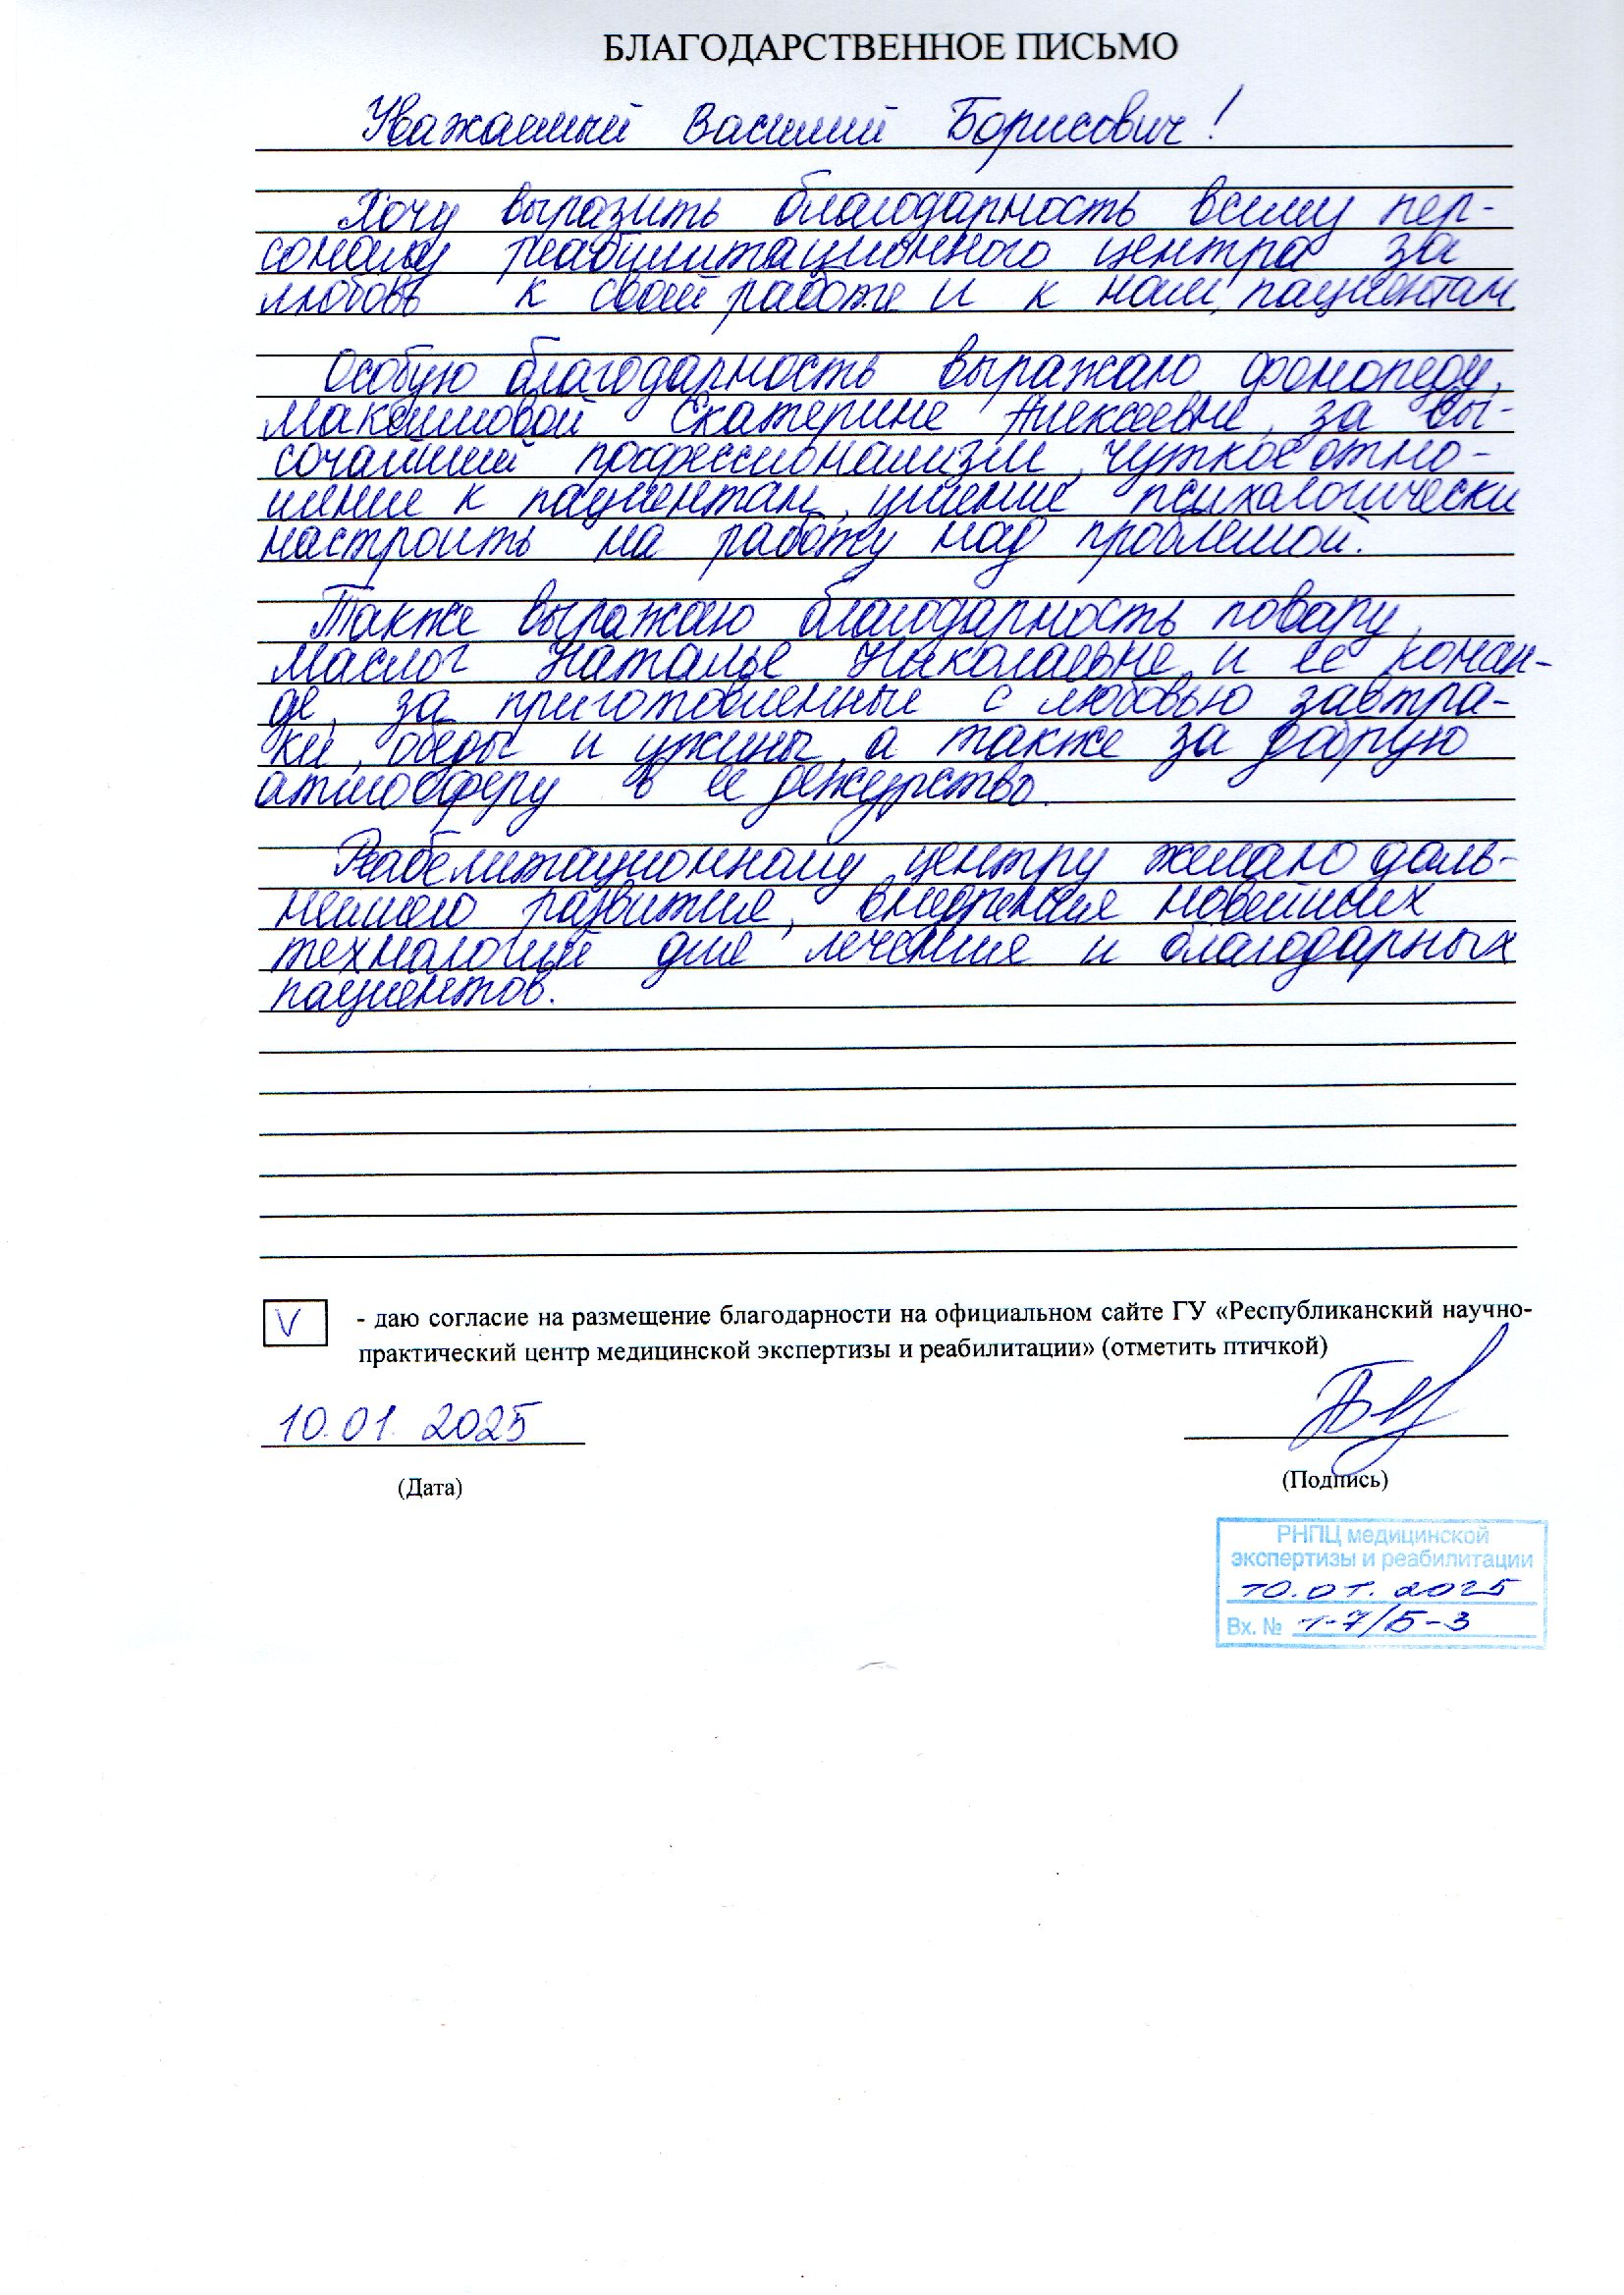 БЛАГОДАРСТВЕННОЕ ПИСЬМО
Уважаемый Василий Борисович!
Хочу выразить благодарность всему пер-
соналу реабилитационного центра за
любовь к своей работе и к нам, пациентам.
Особую благодарность выражаю фонопеду,
Максимовой Екатерине Алексеевне, за вы-
сочайший профессионализм, чуткое отно-
шение к пациентам, умение психологически
настроить на работу над проблемой.
Также выражаю благодарность повару,
Маслог Наталье Николаевне и ее коман-
де, за приготовленные с любовью завтра-
ки, обеды и ужины, а также за добрую
атмосферу в ее дежурство.
Реабелитационному центру желаю даль-
нейшего развития, внедрения новейших
технологий для лечения и благодарных
пациентов.
V - даю согласие на размещение благодарности на официальном сайте ГУ «Республиканский научно-
практический центр медицинской экспертизы и реабилитации» (отметить птичкой)
10.01.2025
(Дата) (Подпись)
РНПЦ медицинской
экспертизы и реабилитации
10.01.2025
Вх. № 1-7/Б-3